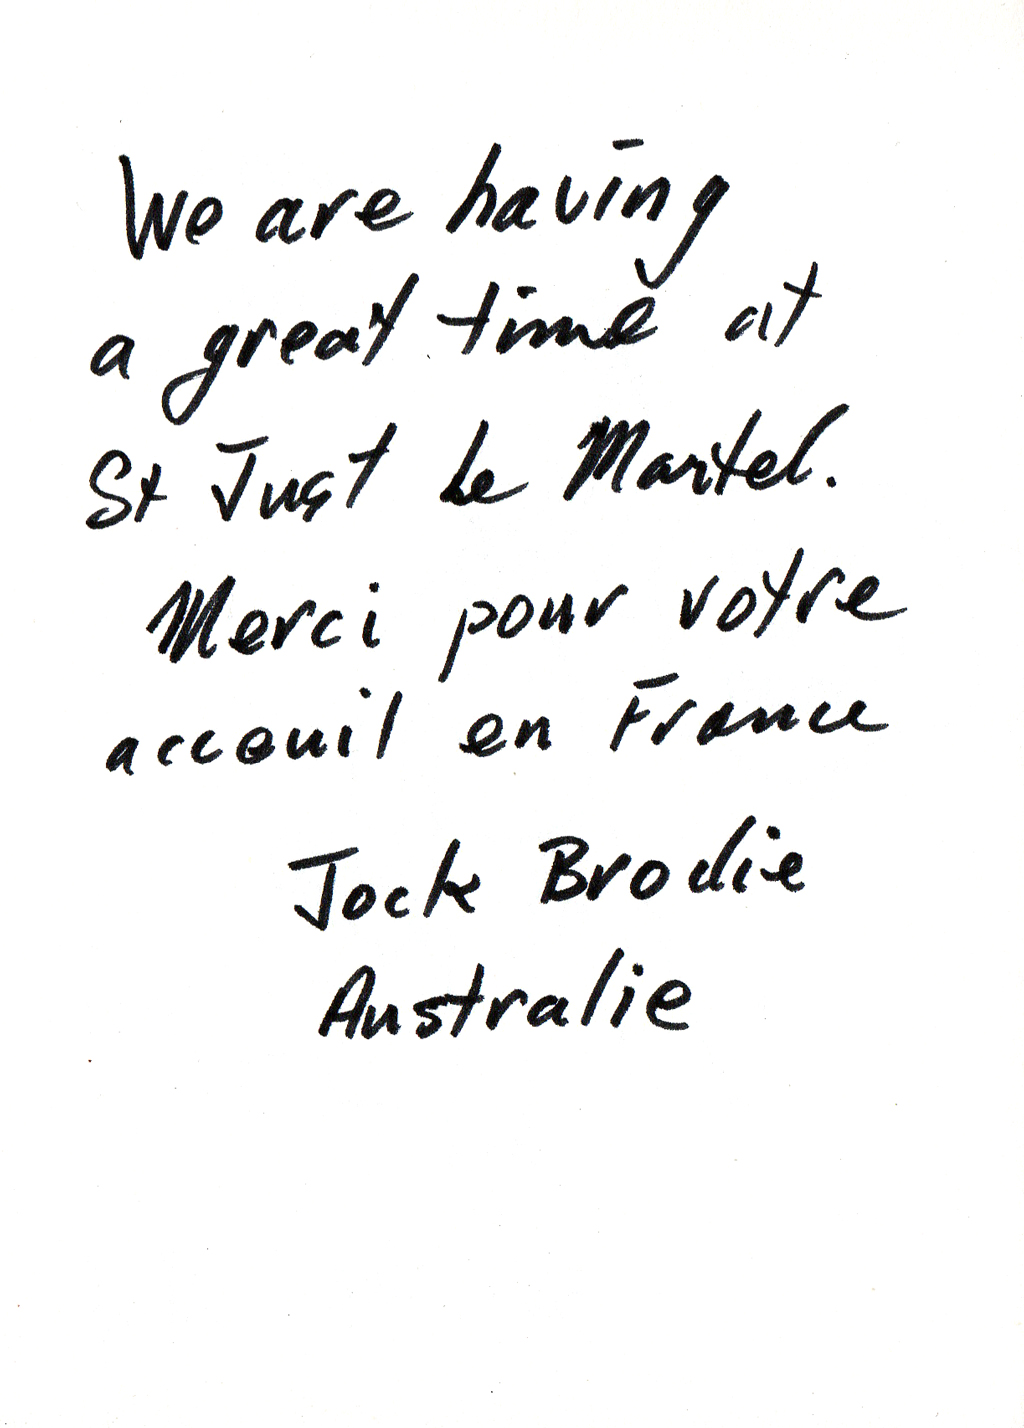 We are having
a great time at
St Just Le Martel.
Merci pour votre
acceuil en France
Jock Brodie
Australie